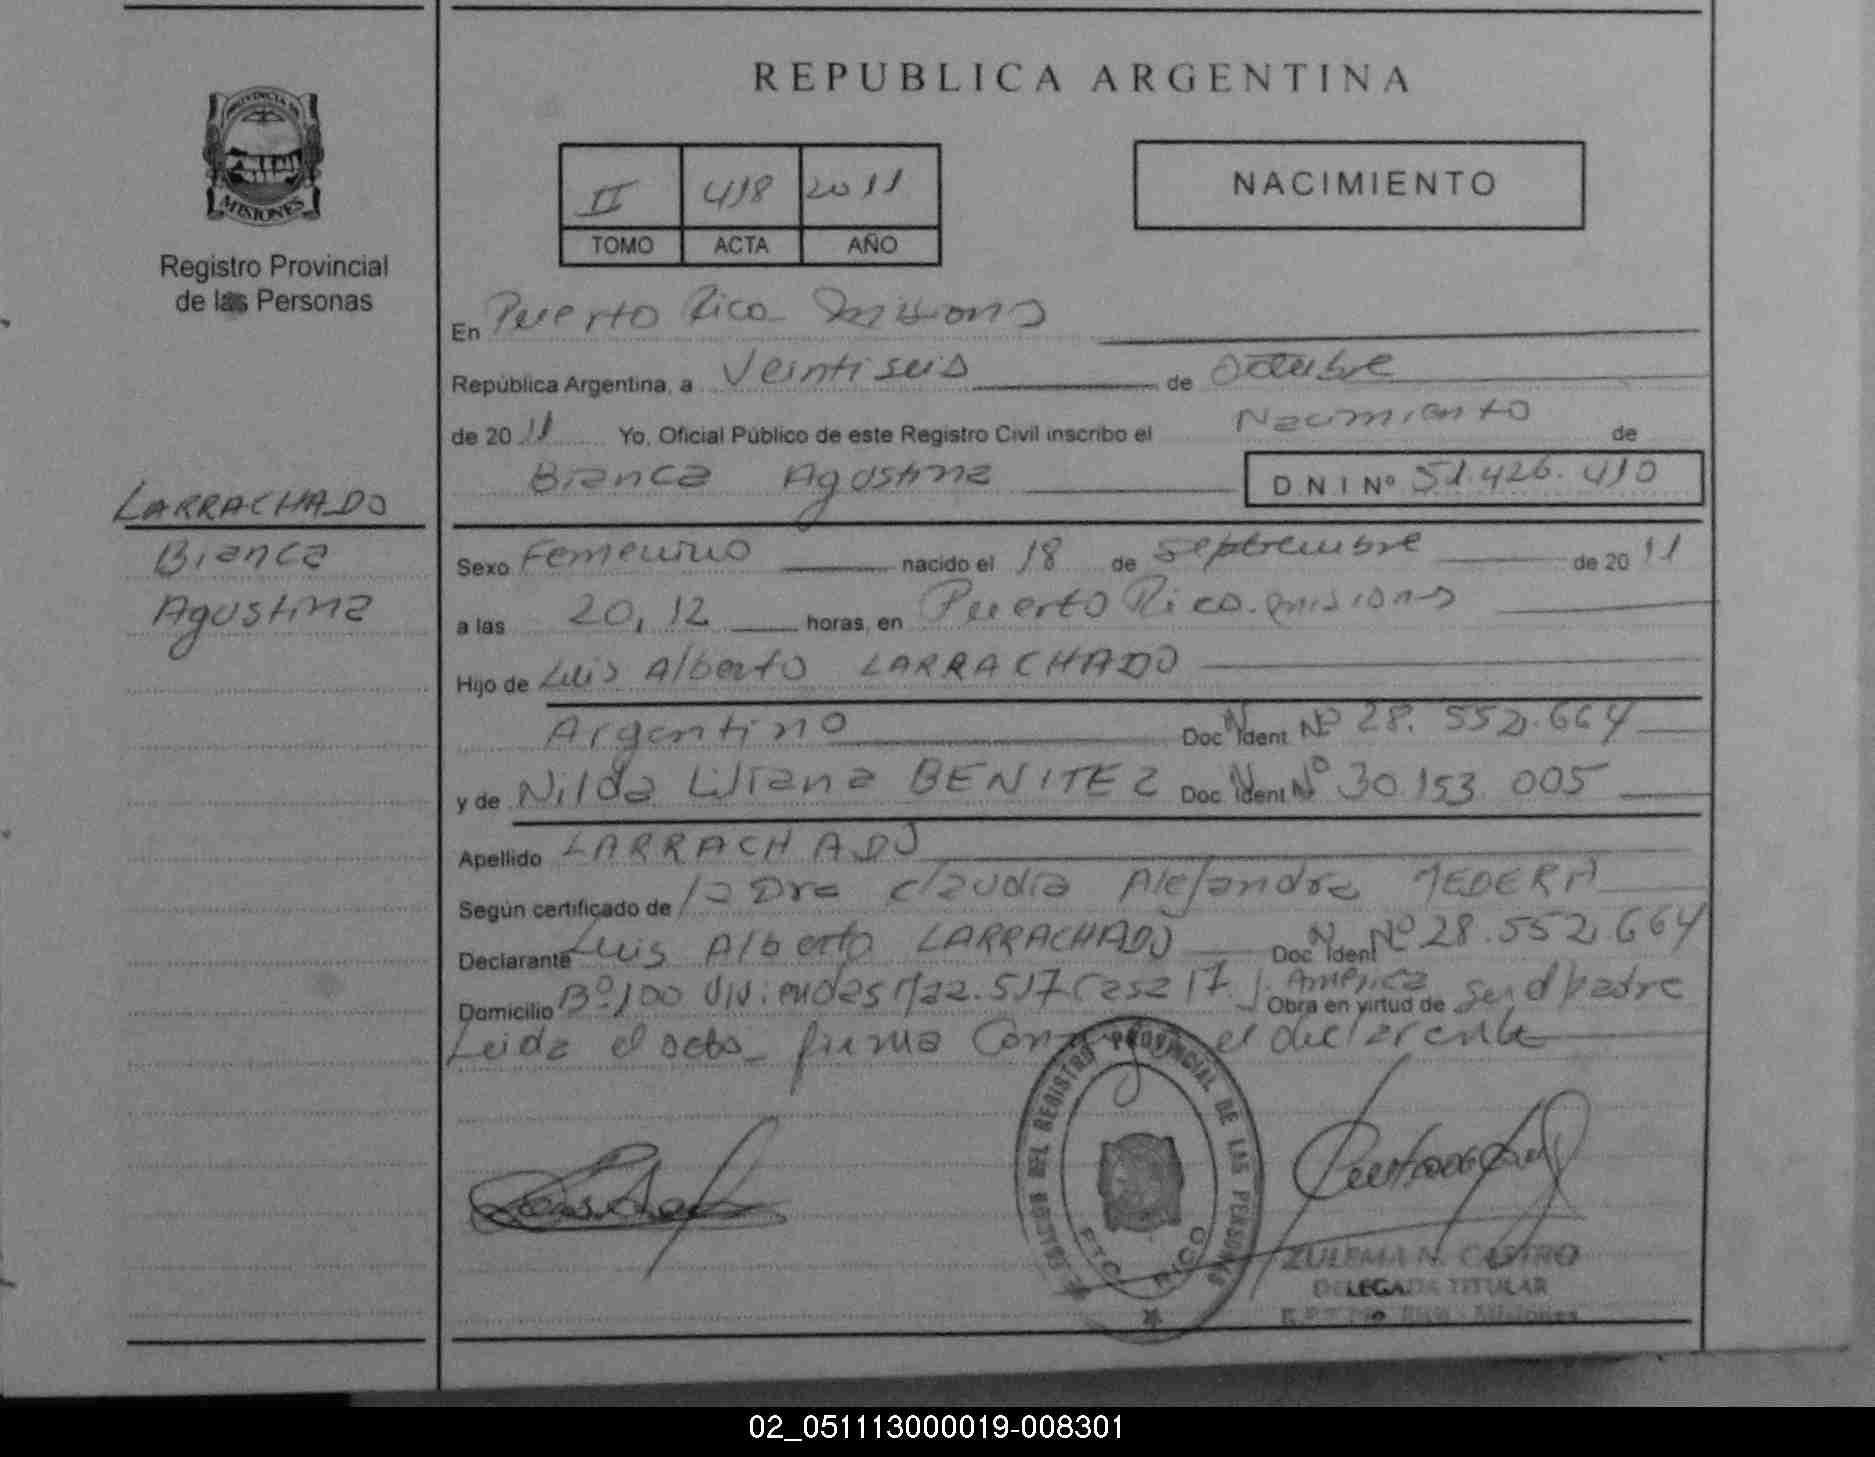 REPUBLICA ARGENTINA
PROVINCIA DE
MISIONES
Registro Provincial
de las Personas
II 418 2011
TOMO ACTA AÑO
NACIMIENTO
En Puerto Rico Misiones
República Argentina, a Veintiseis de Octubre
de 2011 Yo, Oficial Público de este Registro Civil inscribo el Nacimiento de
Bianca Agostina D N I Nº 51.426.410
LARRACHADO
Bianca
Agostina
Sexo Femenino nacido el 18 de Septiembre de 2011
a las 20,12 horas, en Puerto Rico. misiones
Hijo de Luis Alberto LARRACHADO
Argentino Doc N Ident Nº 28.552.664
y de Nilda Liliana BENITEZ Doc N Ident Nº 30.153.005
Apellido LARRACHADO
Según certificado de la Dra Claudia Alejandra
Declarante Luis Alberto LARRACHADO Doc N Ident Nº 28.552.664
Domicilio Bº 100 Viviendas Mz. 517 Casa 17 J. America Obra en virtud de ser el padre
Leida el acta firma el declarante
REGISTRO PROVINCIAL DE LAS PERSONAS
PTO RICO
ZULEMA N. CASTRO
DELEGADA TITULAR
Misiones
02_051113000019-008301